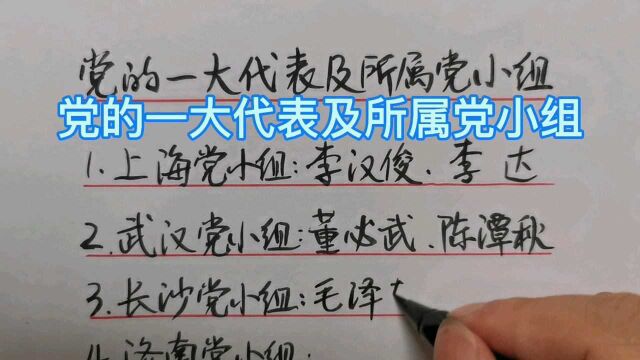 党的一大代表及所属党小组
党的一大代表及所属党小组
1.上海党小组:李汉俊.李达
2.武汉党小组:董必武.陈潭秋
3.长沙党小组:毛泽
4.济南党小组: